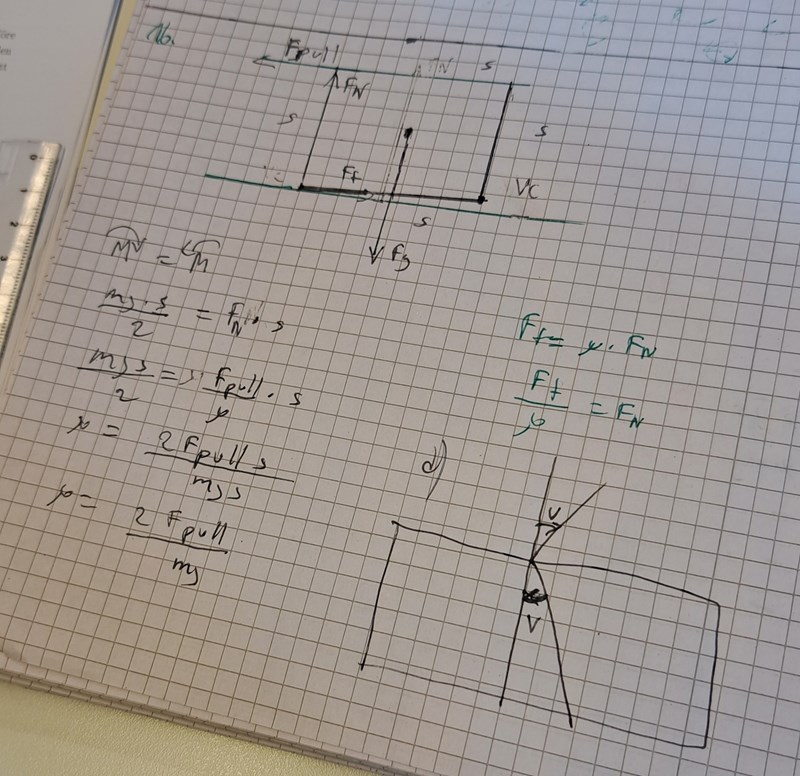 16.
Fpull
FN
N
s
s
s
Ff
Vc
s
Fg
M = M
mg·s/2 = FN · s
mgs/2 = Fpull/μ · s
μ = 2Fpull s/mgs
μ = 2 Fpull/mg
Ff = μ · FN
Ff/μ = FN
d)
v
v